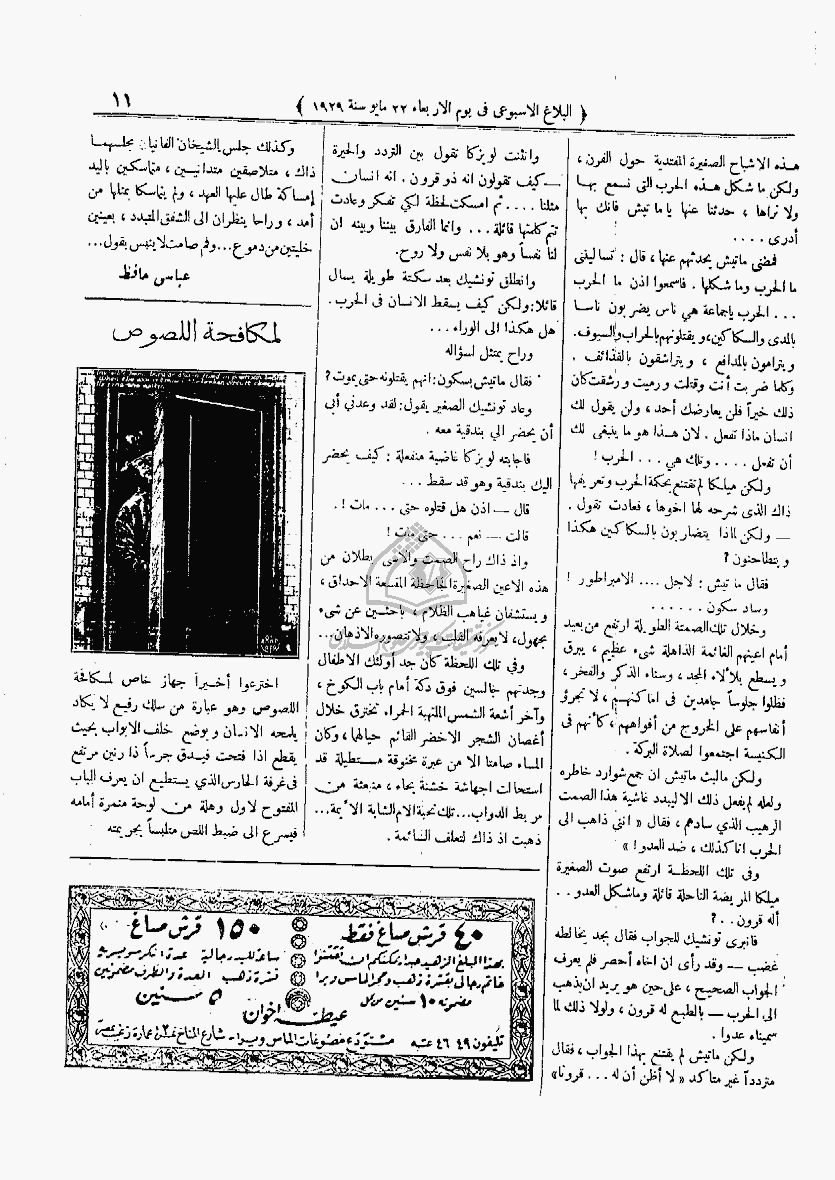 ﴿ البلاغ الاسبوعى فى يوم الاربعاء ٢٢ مايو سنة ١٩٢٩ ﴾
١١
هذه الاشباح الصغيرة المفتدية حول الفرن ،
ولكن ما شكل هذه الحرب التى نسمع بها
ولا نراها ، حدثنا عنها يا ماتيش فانك بها
أدرى . . . .
فمضى ماتيش يحدثهم عنها ، قال : تسألينى
ما الحرب وما شكلها . فاسمعوا اذن ما الحرب
. . . الحرب ياجماعة هي ناس يضربون ناسا
بالمدى والسكاكين، ويقتلونهم بالحراب والسيوف.
ويترامون بالمدافع ، ويتراشقون بالقذائف .
وكلما ضربت أنت وقتلت ورميت ورشقت كان
ذلك خيراً فلن يعارضك أحد ، ولن يقول لك
انسان ماذا تفعل . لان هذا هو ما ينبغى لك
أن تفعل . . . . وتلك هي . . . الحرب !
ولكن ميلكا لم تقتنع بحكمة الحرب وتعريفها
ذاك الذى شرحه لها اخوها ، فعادت تقول .
— ولكن لماذا يتضاربون بالسكاكين هكذا
ويتطاحنون ؟
فقال ماتيش : لاجل .... الامبراطور !
وساد سكون . . . . . .
وخلال تلك الصمتة الطويلة ارتفع من بعيد
أمام اعينهم الغائمة الذاهلة شىء عظيم ، يبرق
ويسطع بلألاء المجد ، وسناء الذكر والفخر ،
فظلوا جلوساً جامدين فى اماكنهم ، لا تجرؤ
أنفاسهم على الخروج من أفواههم ، كأنهم فى
الكنيسة اجتمعوا لصلاة البركة .
ولكن مالبث ماتيش ان جمع شوارد خاطره
ولعله لم يفعل ذلك الا ليبدد غاشية هذا الصمت
الرهيب الذي سادهم ، فقال « انى ذاهب الى
الحرب انا كذلك ، ضد العدو ! »
وفى تلك اللحظة ارتفع صوت الصغيرة
ميلكا المريضة الناحلة قائلة وماشكل العدو . .
أله قرون . . ؟
فانبرى تونشيك للجواب فقال بجد يخالطه
غضب — وقد رأى ان اخاه أحصر فلم يعرف
الجواب الصحيح ، على حين هو يريد ان يذهب
الى الحرب — بالطبع له قرون ، ولولا ذلك لما
سميناه عدوا .
ولكن ماتيش لم يقتنع بهذا الجواب ، فقال
متردداً غير متاكد « لا أظن أن له . . . قرونا»
وانثنت لويزكا تقول بين التردد والحيرة
— كيف تقولون انه ذو قرون . انه انسان
مثلنا .... ثم امسكت لحظة لكي تفكر وعادت
تتم كلمتها قائلة... وانما الفارق بيننا وبينه ان
لنا نفساً وهو بلا نفس ولا روح.
وانطلق تونشيك بعد سكتة طويلة يسال
قائلا: ولكن كيف يسقط الانسان فى الحرب.
هل هكذا الى الوراء . . .
وراح يمتثل اسؤاله
فقال ماتيش بسكون: انهم يقتلونه حتى يموت ؟
وعاد تونشيك الصغير يقول: لقد وعدني أبى
أن يحضر الي بندقية معه .
فاجابته لويزكا غاضبة منفعلة : كيف يحضر
اليك بندقية وهو قد سقط . . .
قال — اذن هل قتلوه حتى . . . مات ! .
قالت — نعم . . . حتى مات !
واذ ذاك راح الصمت والاسى يطلان من
هذه الاعين الصغيرة الجاحظة المتسعة الاحداق ،
ويستشفان غياهب الظلام ، باحثين عن شىء
مجهول، لا يعرفه القلب ، ولا تتصوره الاذهان...
وفى تلك اللحظة كان جد أولئك الاطفال
وجدتهم جالسين فوق دكة أمام باب الكوخ ،
وآخر أشعة الشمس الملتهبة الحمراء تخترق خلال
أغصان الشجر الاخضر القائم حيالها ، وكان
المساء صامتا الا من عبرة مخنوقة مستطيلة قد
استحالت اجهاشة خشنة بحاء ، منبعثة من
مربط الدواب... تلك نحيبة الام الشابة الأيمة...
ذهبت اذ ذاك لتعلف السائمة .
وكذلك جلس الشيخان الفانيان بجلسهما
ذاك ، متلاصقين متدانيين ، متماسكين باليد
إمساكة طال عليها العهد ، ولم يتماسكا بمثلها من
أمد ، وراحا ينظران الى الشفق المتبدد ، بعينين
خليتين من دموع ... وفم صامت لا ينبس بقول...
عباس حافظ
لمكافحة اللصوص
اخترعوا أخيراً جهاز خاص لمكافحة
اللصوص وهو عبارة من سلك رفيع لا يكاد
يلمحه الانسان ويوضع خلف الابواب بحيث
يقطع اذا فتحت فيدق جرساً ذا رنين مرتفع
فى غرفة الحارس الذي يستطيع ان يعرف الباب
المفتوح لاول وهلة من لوحة منمرة أمامه
فيسرع الى ضبط اللص متلبساً بجريمته
٤٠ قرش صاغ فقط
بهذا المبلغ الزهيد يمكنكم ان تقتنوا
خاتم رجالى بقشرة ذهب وحجر الماس وبرا
مضمونه ١٠ سنين
١٥٠ قرش صاغ
ساعة لليد رجالية عدة انكر سويسرى
قشرة ذهب العدة والظرف مضمونين
٥ سنين
عيطه اخوان
تليفون ٤٦٤٩ عتبه مستودع مصنوعات الماس وبيرا - شارع المناخ نمرة ٢ عمارة زغيب بمصر